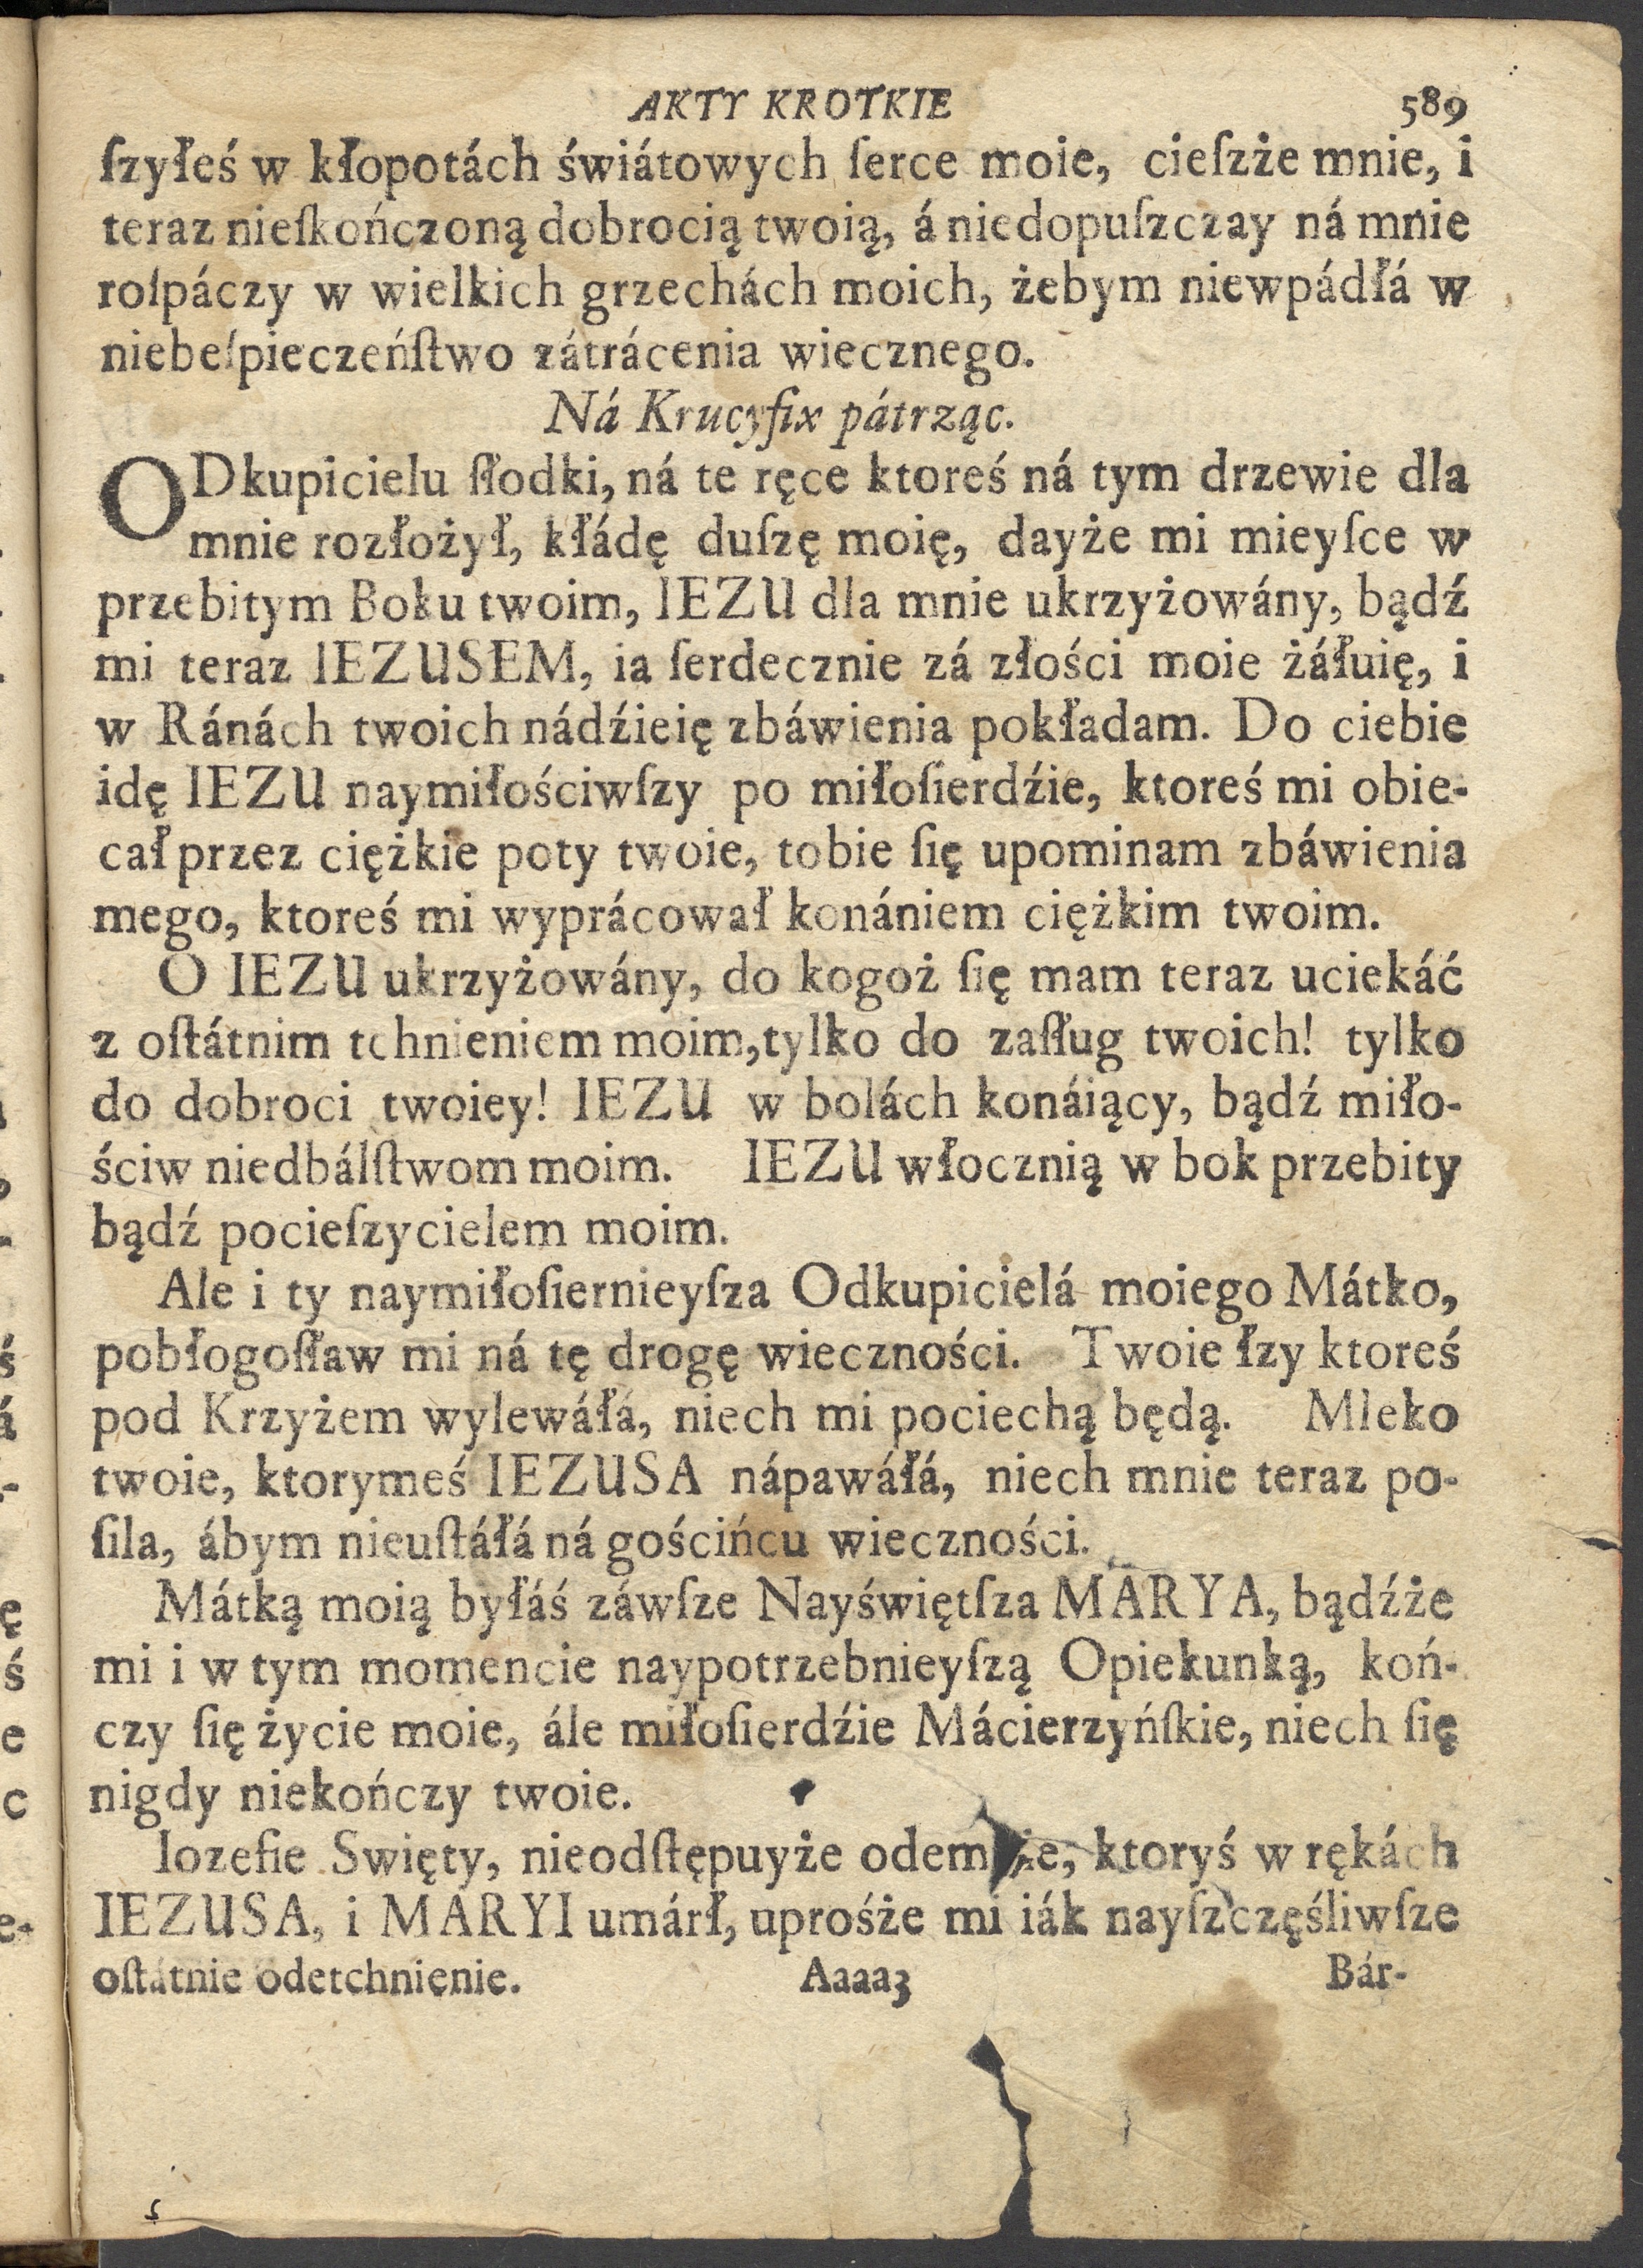 AKTY KROTKIE 589
ſzyłeś w kłopotách świátowych ſerce moie, cieſzże mnie, i
teraz nieſkończoną dobrocią twoią, á niedopuſzczay ná mnie
roſpáczy w wielkich grzechách moich, żebym niewpádłá w
niebeſpieczeńſtwo zátrácenia wiecznego.
Ná Krucyfix pátrząc.
ODkupicielu ſłodki, ná te ręce ktoreś ná tym drzewie dla
mnie rozłożył, kłádę duſzę moię, dayże mi mieyſce w
przebitym Boku twoim, IEZU dla mnie ukrzyżowány, bądź
mi teraz IEZUSEM, ia ſerdecznie zá złości moie żáłuię, i
w Ránách twoich nádźieię zbáwienia pokładam. Do ciebie
idę IEZU naymiłościwſzy po miłoſierdźie, ktoreś mi obie-
cał przez ciężkie poty twoie, tobie ſię upominam zbáwienia
mego, ktoreś mi wyprácował konániem ciężkim twoim.
O IEZU ukrzyżowány, do kogoż ſię mam teraz uciekáć
z oſtátnim tchnieniem moim, tylko do zaſług twoich! tylko
do dobroci twoiey! IEZU w bolách konáiący, bądź miło-
ściw niedbálſtwom moim. IEZU włocznią w bok przebity
bądź pocieſzycielem moim.
Ale i ty naymiłoſiernieyſza Odkupicielá moiego Mátko,
pobłogoſław mi ná tę drogę wieczności. Twoie łzy ktoreś
pod Krzyżem wylewáłá, niech mi pociechą będą. Mleko
twoie, ktorymeś IEZUSA nápawáłá, niech mnie teraz po-
ſila, ábym nieuſtáłá ná gościńcu wieczności.
Mátką moią byłáś záwſze Nayświętſza MARYA, bądźże
mi i w tym momencie naypotrzebnieyſzą Opiekunką, koń-
czy ſię życie moie, ále miłoſierdźie Mácierzyńſkie, niech ſię
nigdy niekończy twoie.
Iozefie Swięty, nieodſtępuyże odemnie, ktoryś w rękách
IEZUSA, i MARYI umárł, uprośże mi iák nayſzczęśliwſze
oſtátnie odetchnienie. Aaaa3 Bár-